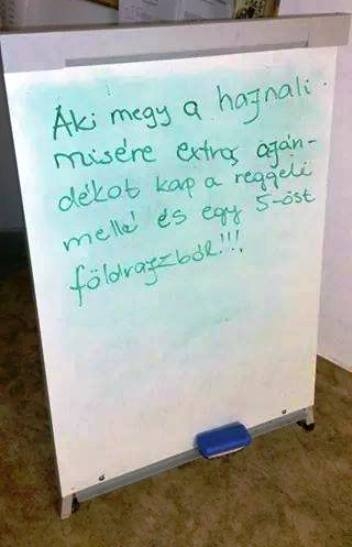 Aki megy a hajnali
misére extra aján-
dékot kap a reggeli
mellé és egy 5-öst
földrajzból!!!